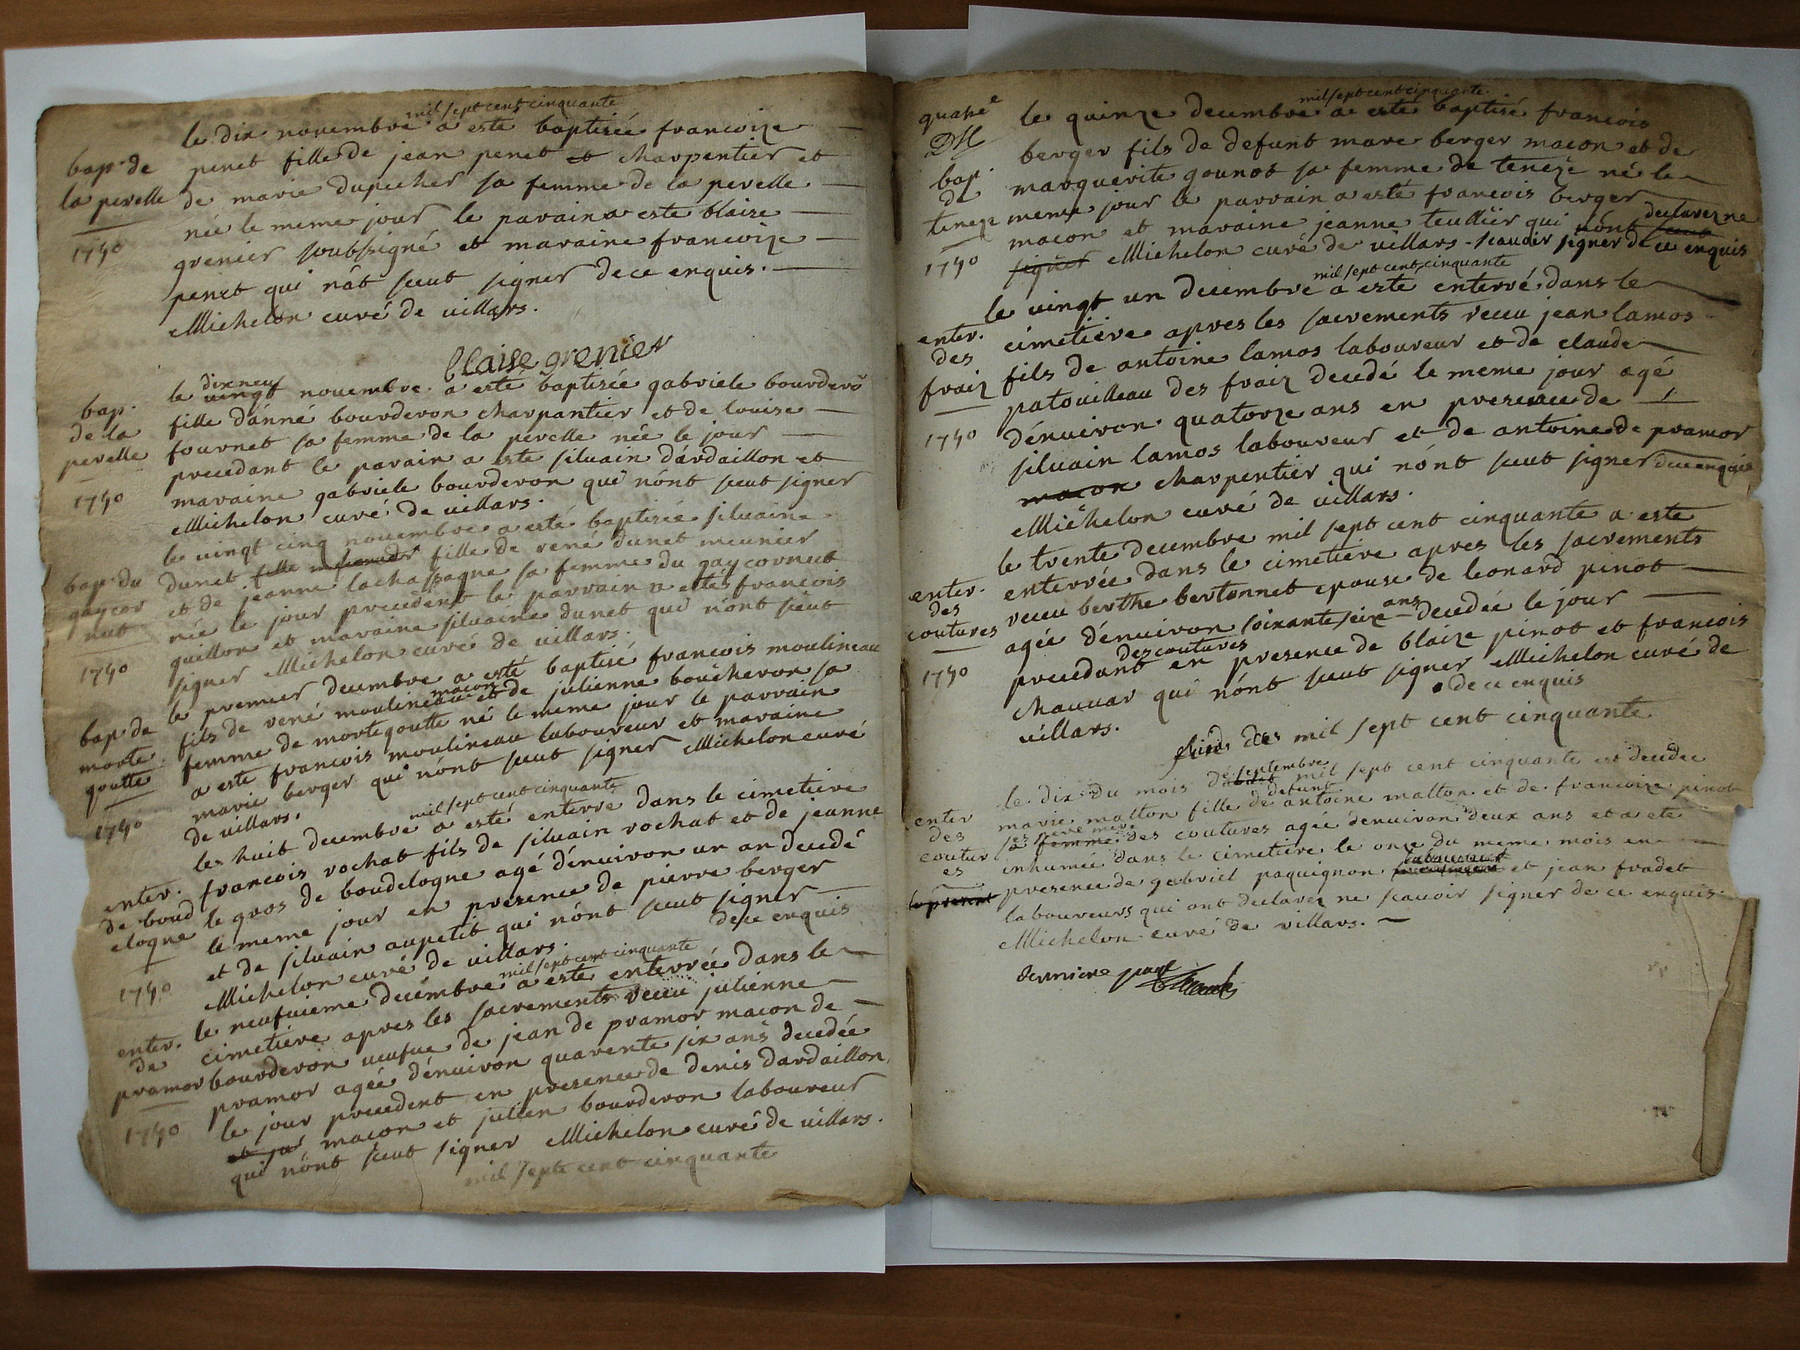 mil sept cent cinquante
le dix novembre a esté baptisée francoize
bap. de
la perelle
1750
penet fille de jean penet et charpentier et
de marie dupecher sa femme de la perelle
née le meme jour le parain a este blaize
grenier soubsigné et maraine francoize
penet qui n'at scut signer de ce enquis.
Michelon curé de villars.
blaise grenier
dixneuf
le vingt novembre a esté baptisée gabriele bourderō
bap.
de la
perelle
1750
fille d'anné bourderon charpantier et de louise
fournet sa femme de la perelle née le jour
precedant le parain a este silvain dardaillon et
maraine gabriele bourderon qui n'ont scut signer
Michelon curé de villars.
le vingt cinq novembre a esté baptisée silvaine
bap. du
gaycor
nut
1750
dunet fille de rené dunet meunier
et de jeanne lachassagne sa femme du gaycornut
née le jour precedent le parrain a esté francois
quillon et maraine silvaine dunet qui n'ont scut
signer Michelon curé de villars.
le premier decembre a esté baptisé francois moulineau
bap. de
morte
goutte
1750
macon
fils de rené moulineau et de julienne boucheron sa
femme de mortegoutte né le meme jour le parrain
a este francois moulineau laboureur et maraine
marie berger qui n'ont scut signer Michelon curé
de villars.
mil sept cent cinquante
le huit decembre a esté enterré dans le cimetiere
enter.
de boud
eloque
1750
francois rochat fils de silvain rochat et de jeanne
le gros de boudeloque agé d'environ un an decedé
le meme jour en presence de pierre berger
et de silvain aupetit qui n'ont scut signer
de ce enquis
Michelon curé de villars.
mil sept cent cinquante
le neufvieme decembre a este enterrée dans le
enter.
de
pramor
1750
cimetiere apres les sacrements receu julienne
bourderon veufve de jean de pramor macon de
pramor agée d'environ quarente six ans decedée
le jour precedent en presence de denis dardaillon
macon et julien bourderon laboureur
qui n'ont scut signer Michelon curé de villars.
mil sept cent cinquante
mil sept cent cinquante
le quinze decembre a este baptisé francois
bap.
de
teneze
1750
berger fils de defunt marc berger macon et de
marguerite gounot sa femme de teneze né le
meme jour le parrain a esté francois berger
macon et maraine jeanne teullier qui n'ont scut declarez ne
signer Michelon curé de villars - scavoir signer de ce enquis
mil sept cent cinquante
le vingt un decembre a este enterré dans le
enter.
des
fraiz
1750
cimetiere apres les sacrements receu jean lamos
fils de antoine lamos laboureur et de claude
patouilleau des fraiz decedé le meme jour agé
d'environ quatorze ans en presence de
silvain lamos laboureur et de antoine de pramor
macon charpentier qui n'ont scut signer de ce enquis
Michelon curé de villars.
le trente decembre mil sept cent cinquante a este
enter.
des
coutures
1750
enterrée dans le cimetiere apres les sacrements
receu berthe bertonnet epouse de leonard pinot
ans
agée d'environ soixante seize decedée le jour
des coutures
precedant en presence de blaize pinot et francois
chauvar qui n'ont scut signer Michelon curé de
de ce enquis
villars.
mil sept cent cinquante
septembre
le dix du mois de mil sept cent cinquante est decedee
defunt
enter
des
coutur
es
marie matton fille de antoine matton et de francoize pinot
ses pere mere
sa femme des coutures agée d'environ deux ans et a eté
inhumée dans le cimetiere le onze du meme mois en
laboureur
presence de gabriel paquignon et jean fradet
laboureurs qui ont declarez ne scavoir signer de ce enquis.
Michelon curé de villars.
derniere page